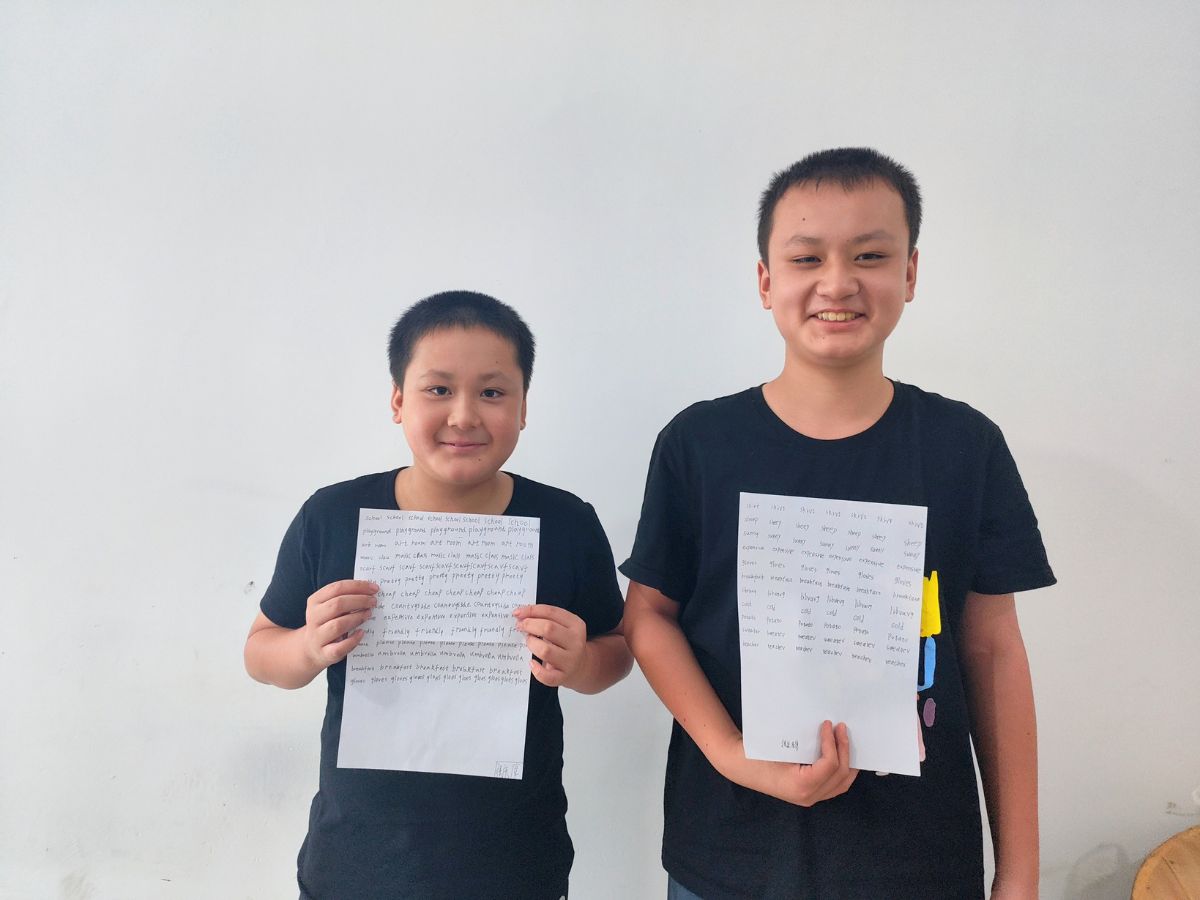 school school school school school school school school
playground playground playground playground playground
art room art room art room art room
music class music class music class music class music class
scarf scarf scarf scarf scarf scarf scarf scarf
pretty pretty pretty pretty pretty
cheap cheap cheap cheap cheap cheap
countryside countryside countryside
expensive expensive expensive expensive
friendly friendly friendly friendly friendly
please please please please please
umbrella umbrella umbrella umbrella umbrella
breakfast breakfast breakfast breakfast breakfast
gloves gloves gloves gloves gloves gloves gloves gloves gloves
sheep sheep sheep sheep sheep sheep
sunny sunny sunny sunny sunny sunny
expensive expensive expensive expensive expensive expensive
gloves gloves gloves gloves gloves
breakfast breakfast breakfast breakfast breakfast
library library library library library
cold cold cold cold cold cold
potato potato potato potato potato potato
sweater sweater sweater sweater sweater
teacher teacher teacher teacher teacher